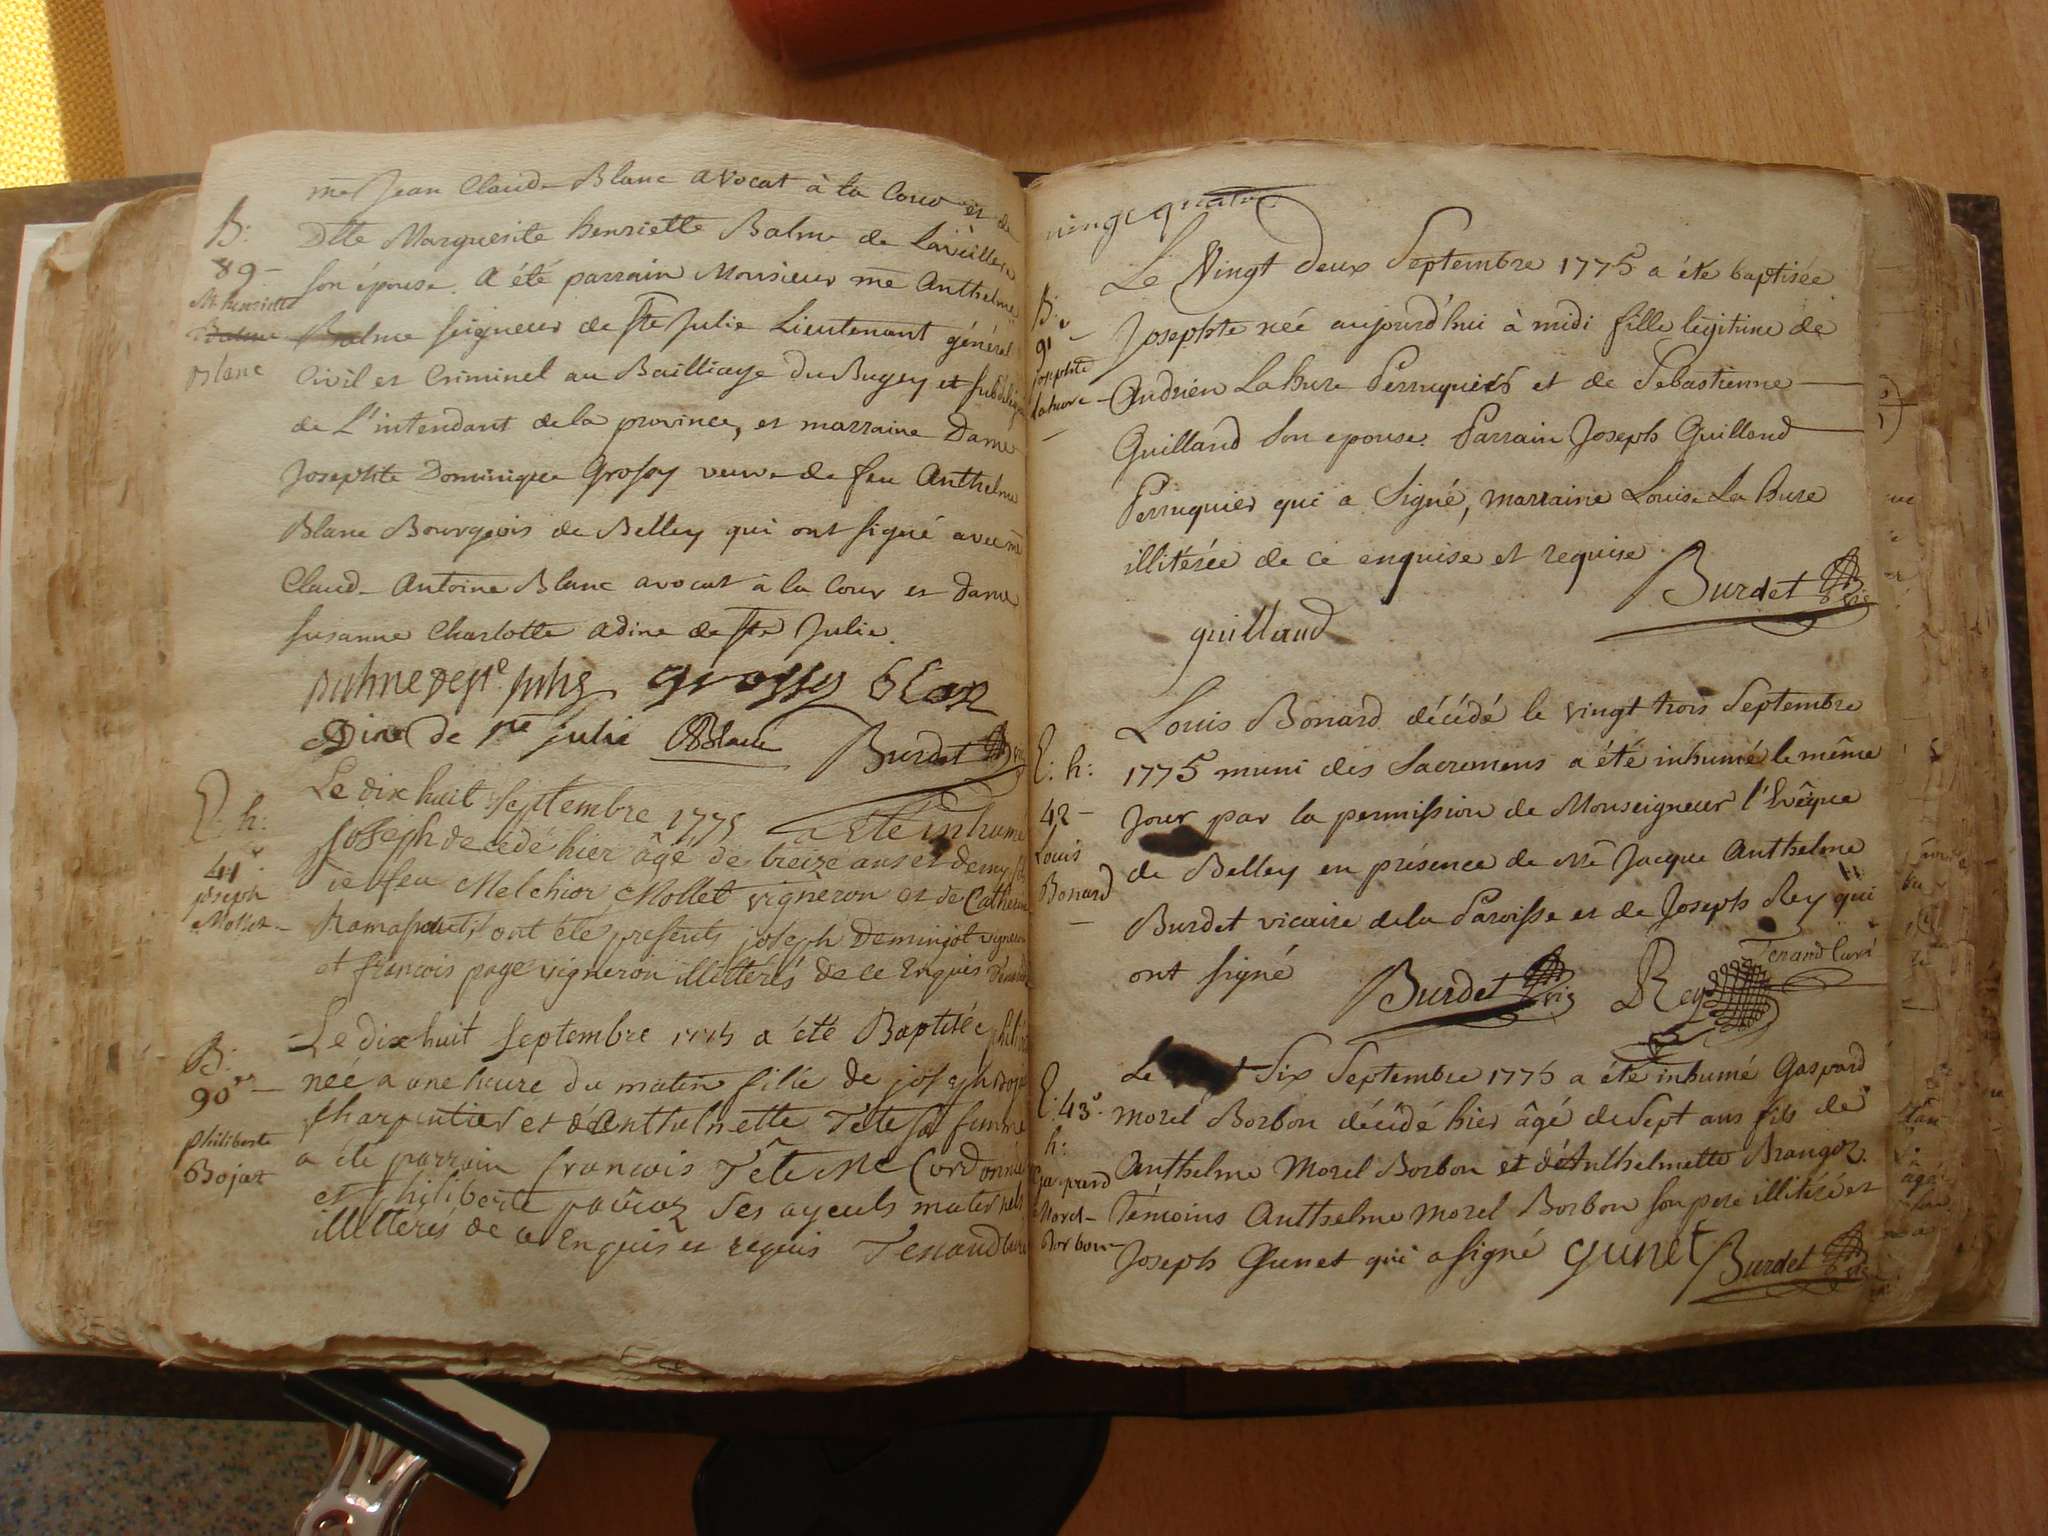 me Jean Claude Blanc avocat à la Cour et de
Dlle Marguerite henriette Balme de
B:
89
M. henriette
Blanc
son épouse. a été parrain Monsieur me Anthelme
Balme seigneur de Ste Julie Lieutenant général
Civil et Criminel au Bailliage du Bugey et
de L'intendant de la province, et marraine Dame
Josephte Dominique Grossy veuve de feu Anthelme
Blanc Bourgeois de Belley qui ont signé avec me
Claude Antoine Blanc avocat à la Cour et Dame
susanne Charlotte adine de Ste Julie.
grossy blanc
Dine de Ste julie Blanc Burdet
E: h:
41
joseph
Mollet
Le dix huit Septembre 1775 a été inhumé
joseph decedé hier âgé de treize ans et demy fils
de feu Melchior Mollet vigneron et de Catherine
ont été presents joseph Deminjot vigneron
et francois page vigneron illetterés de ce Enquis
B:
90
philiberte
Bojat
Le dix huit septembre 1775 a été Baptisée
née a une heure du matin fille de joseph
charpentier et d'anthelmette Tête sa femme
a été parrain francois Tête Me Cordonnier
et philiberte ses ayeuls maternels
illetterés de ce Enquis et requis Tenand Curé
vingt quatre
B:
91
josephte
lahure
Le Vingt deux Septembre 1775 a été baptisée
Josephte née aujourd'hui à midi fille légitime de
Andrien La hure Perruquier et de Sebastienne
Guilland son epouse. Parrain Joseph Guilland
Perruquier qui a signé, marraine Louise La hure
illitérée de ce enquise et requise
Burdet vic
guilland
E: h:
42
Louis
Bonard
Louis Bonard décédé le vingt trois Septembre
1775 muni des Sacremens a été inhumé le même
Jour par la permission de Monseigneur l'Evêque
de Belley en présence de Me Jacque Anthelme
Burdet vicaire de la Paroisse et de Joseph Rey qui
ont signé Burdet vic Rey Tenand Curé
E: 43
h:
Gaspard
Morel
Borbon
Le Six Septembre 1775 a été inhumé Gaspard
morel Borbon décédé hier âgé de Sept ans fils de
Anthelme Morel Borbon et d'Anthelmette Brangoz.
Témoins Anthelme morel Borbon son pere illitéré et
Joseph Gunet qui a signé gunet Burdet vic